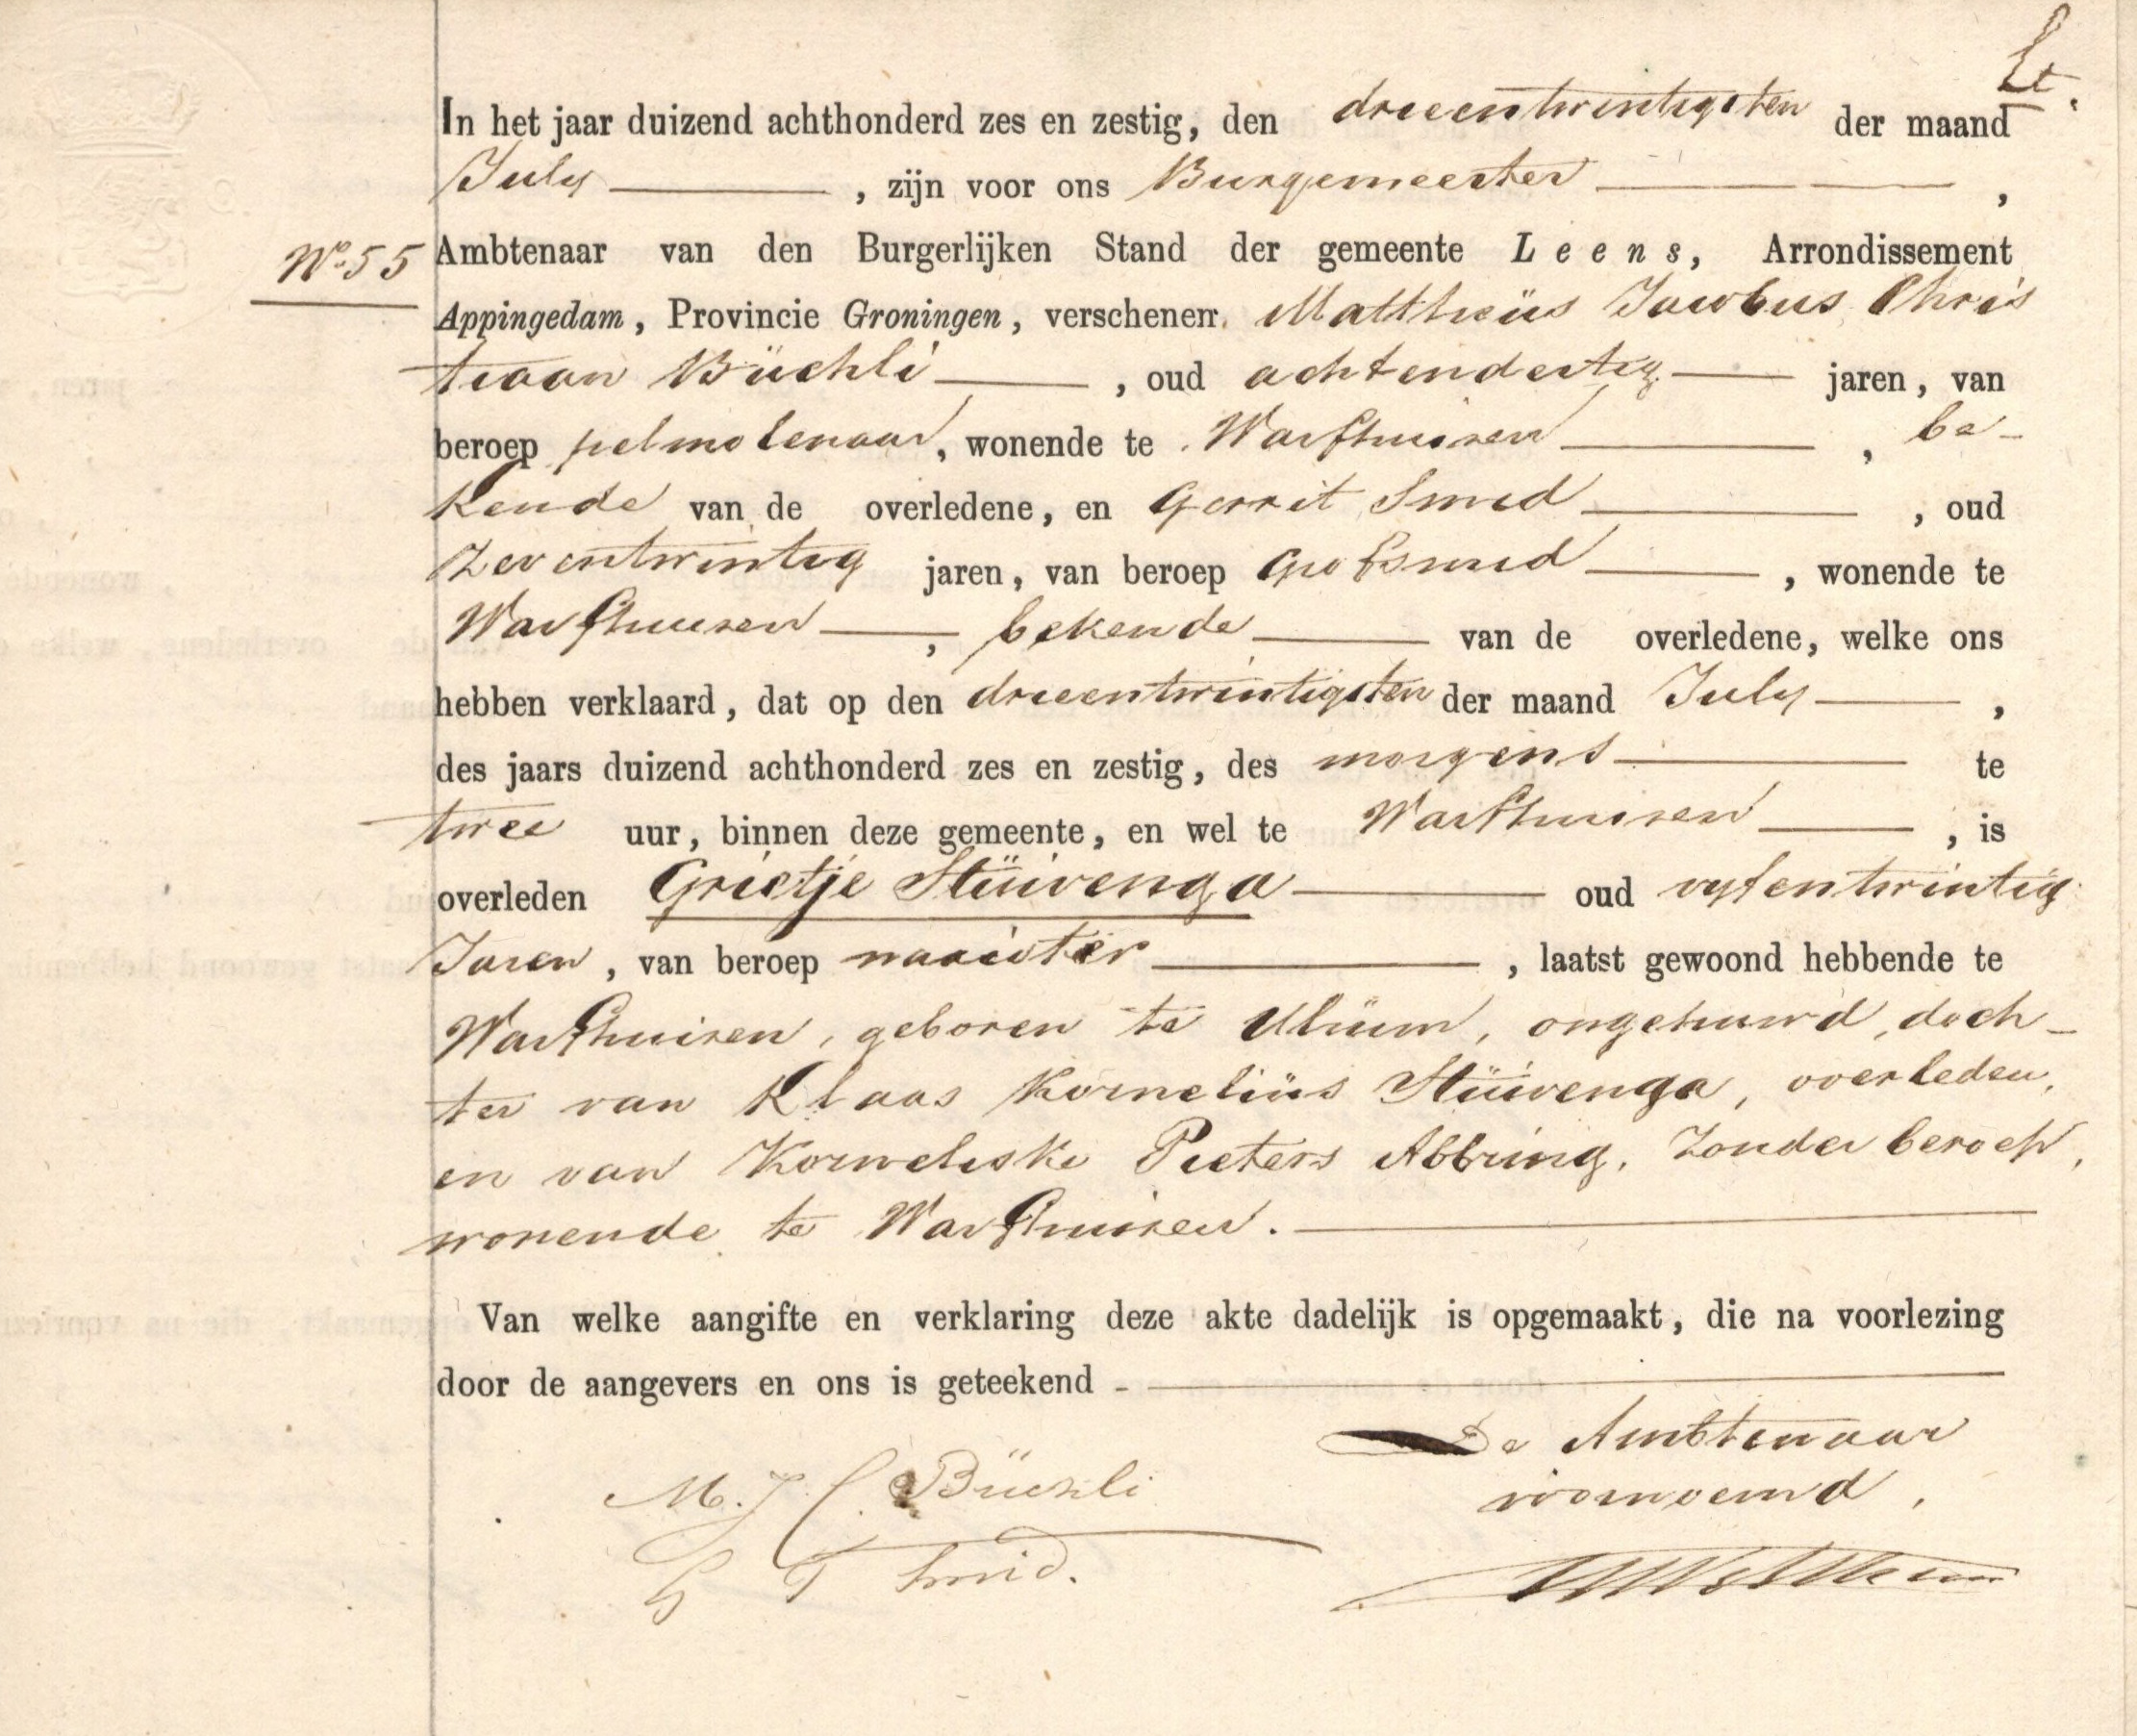 Et.
In het jaar duizend achthonderd zes en zestig, den drieentwintigsten der maand
July , zijn voor ons Burgemeester ,
No. 55 Ambtenaar van den Burgerlijken Stand der gemeente Leens, Arrondissement
Appingedam, Provincie Groningen, verschenen Matthëüs Jacobus Chris
tiaan Büchli , oud achtendertig jaren, van
beroep pelmolenaar, wonende te Warfhuisen , be-
kende van de overledene, en Gerrit Smid , oud
zeventwintig jaren, van beroep Grofsmid , wonende te
Warfhuisen , bekende van de overledene, welke ons
hebben verklaard, dat op den drieentwintigsten der maand July ,
des jaars duizend achthonderd zes en zestig, des morgens te
twee uur, binnen deze gemeente, en wel te Warfhuisen , is
overleden Grietje Stüivenga oud vyfentwintig
Jaren, van beroep naaister , laatst gewoond hebbende te
Warfhuisen, geboren te Ulrum, ongehuwd, doch-
ter van Klaas Kornelius Stüivenga, overleden,
en van Korneliske Pieters Abbring, zonder beroep,
wonende te Warfhuisen.
Van welke aangifte en verklaring deze akte dadelijk is opgemaakt, die na voorlezing
door de aangevers en ons is geteekend -
De Ambtenaar
voornoemd,
M. J. C. Büchli
G T Smid.